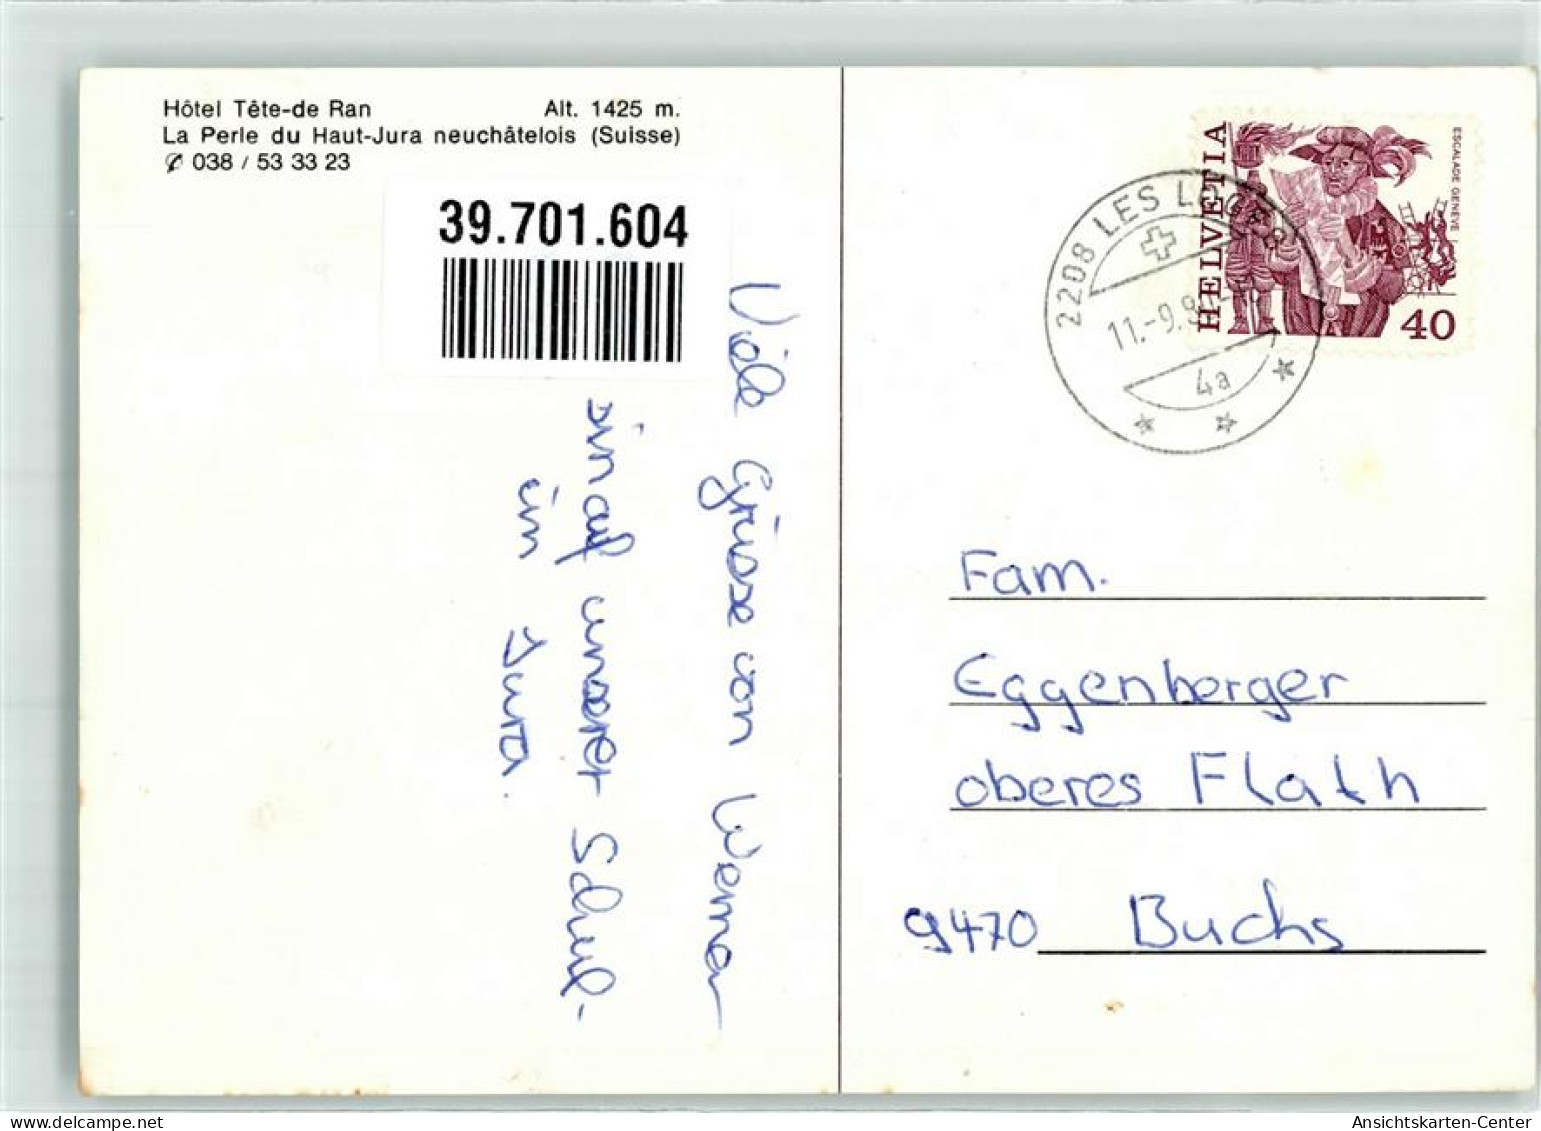 Hôtel Tête-de Ran Alt. 1425 m.
La Perle du Haut-Jura neuchâtelois (Suisse)
✆ 038 / 53 33 23
39.701.604
Viele Grüsse von Werner
auf unserer Schul-
im Jura.
HELVETIA
ESCALADE GENÈVE
40
2208 LES LOGES
11.-9.8
4a
Fam.
Eggenberger
oberes Flath
9470 Buchs
Ansichtskarten-Center